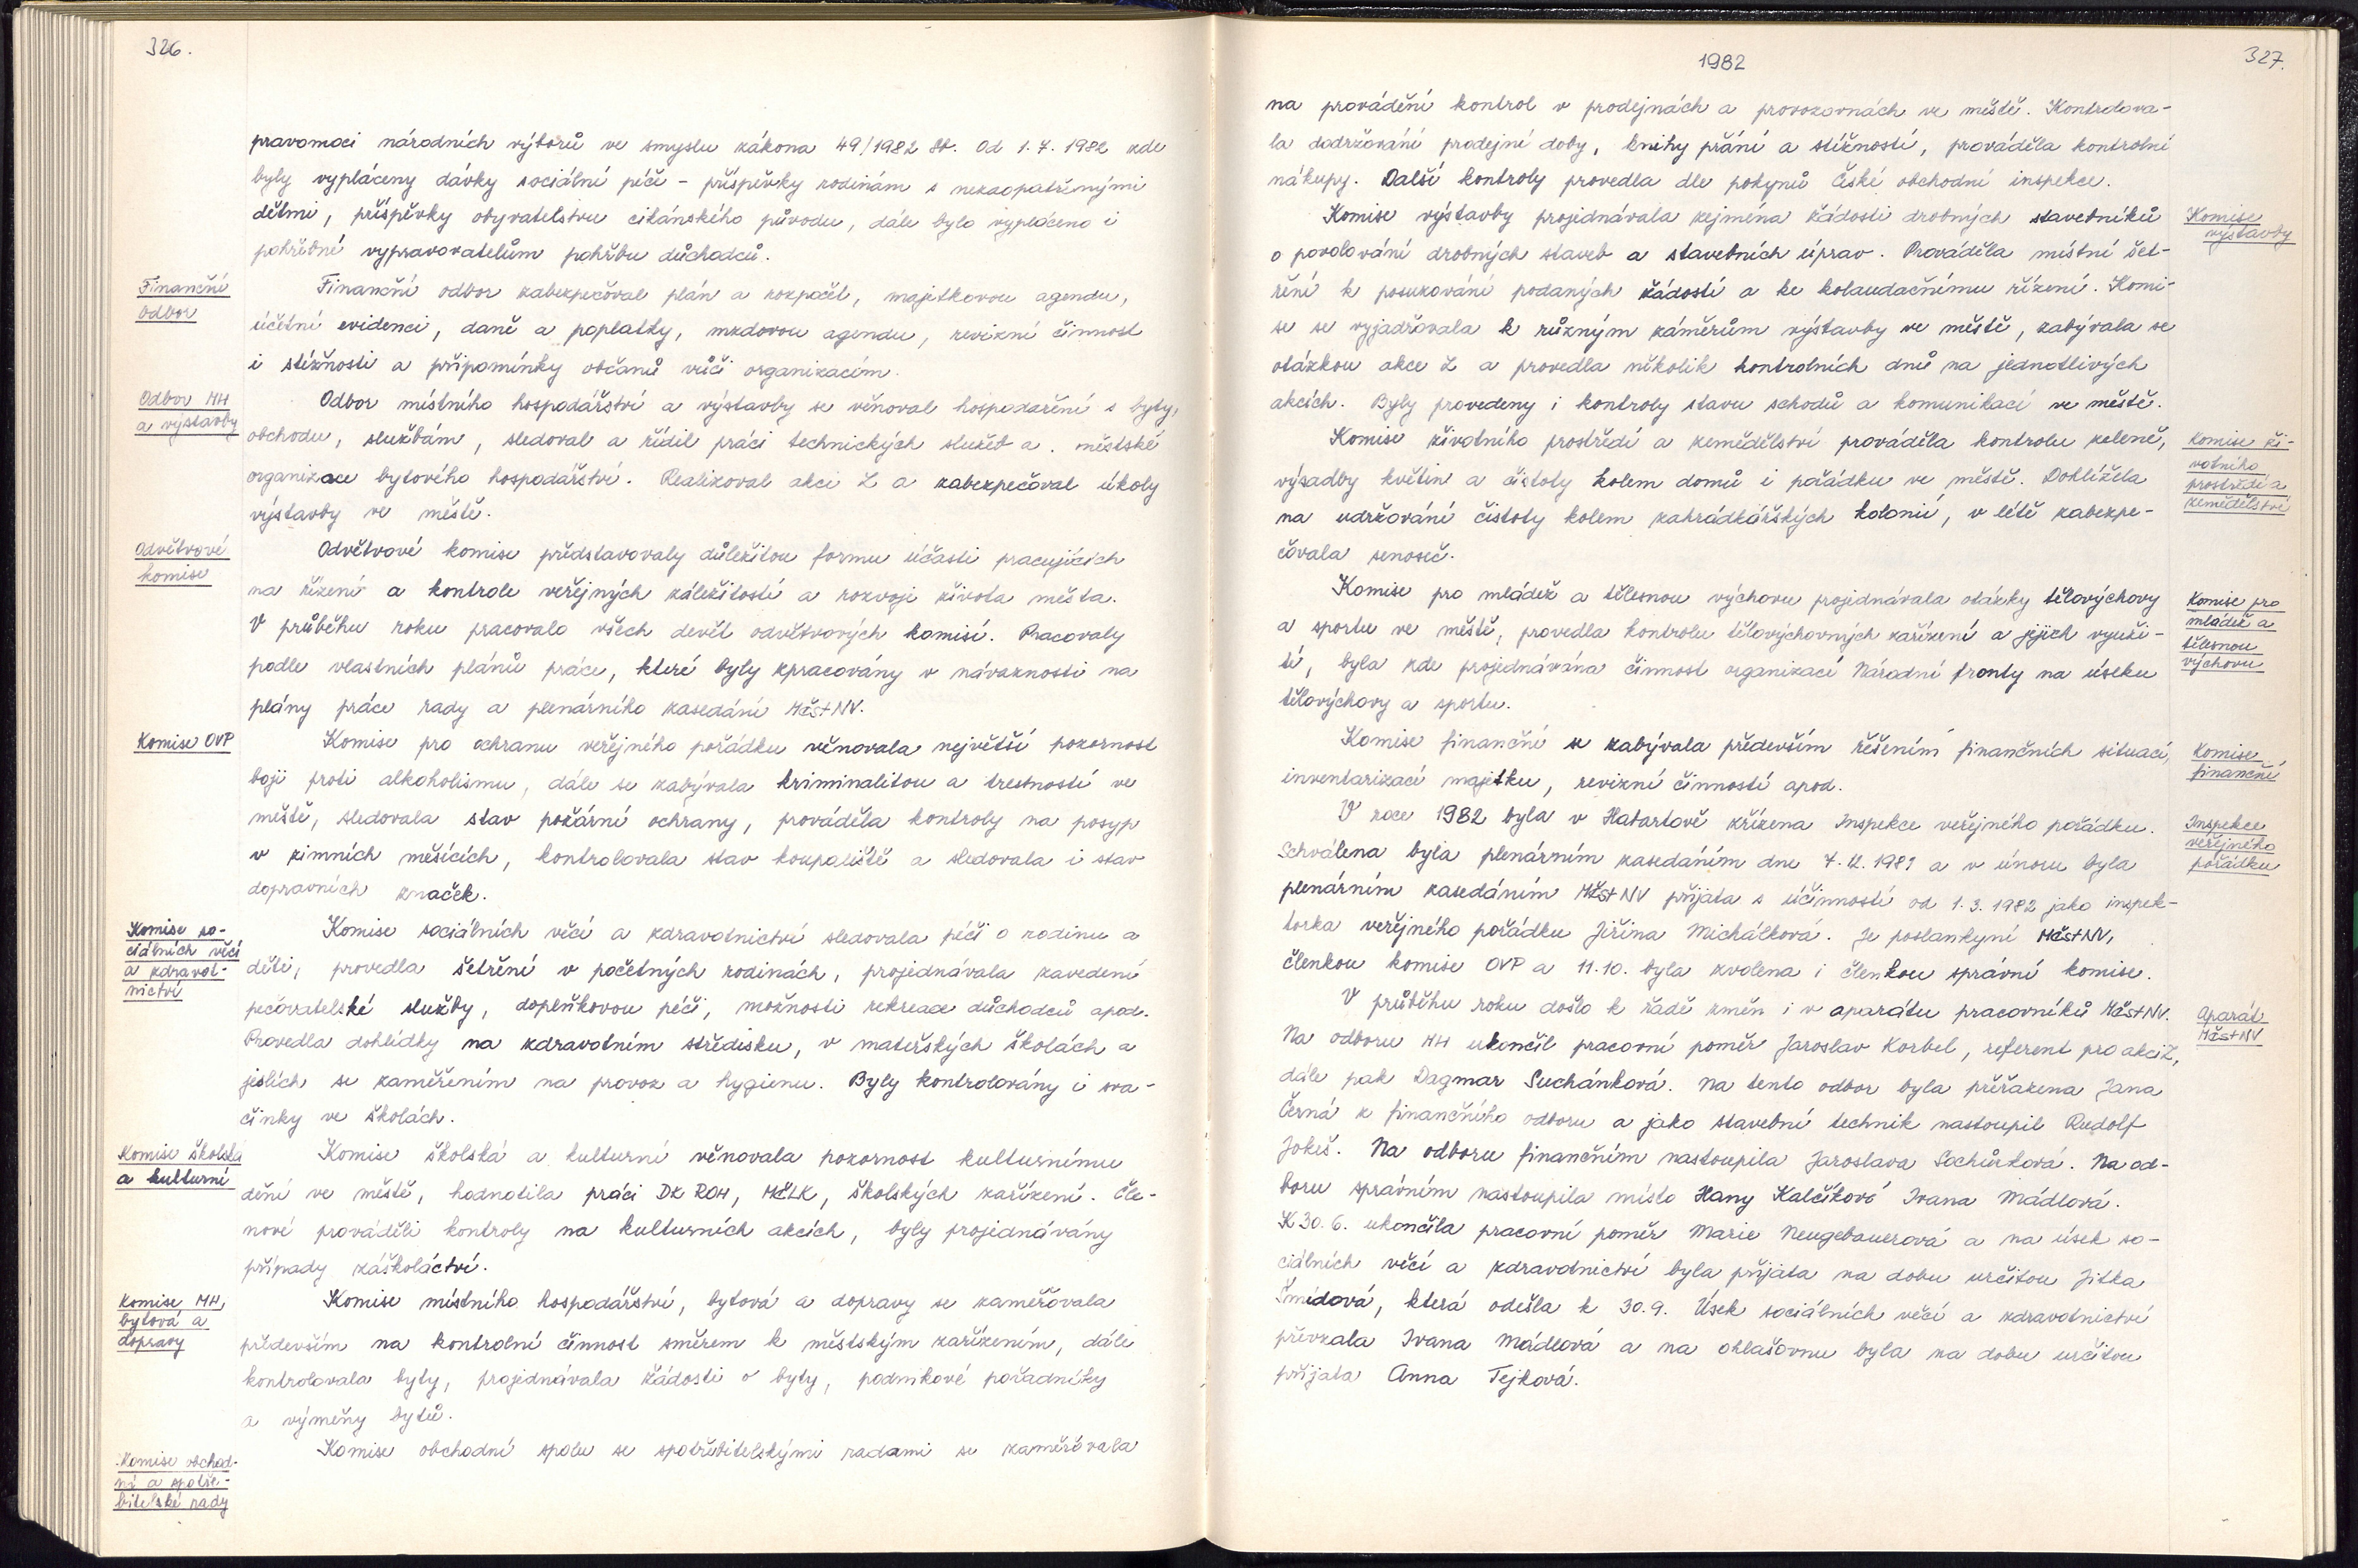 326.
pravomoci národních výborů ve smyslu zákona 49/1982 Sb. Od 1.7.1982 zde
byly vypláceny dávky sociální péče - příspěvky rodinám s nezaopatřenými
dětmi, příspěvky obyvatelstvu cikánského původu, dále bylo vypláceno i
pohřebné vypravovatelům pohřbu důchodců.
Finanční
odbor
Finanční odbor zabezpečoval plán a rozpočet, majetkovou agendu,
účetní evidenci, daně a poplatky, mzdovou agendu, revizní činnost
i stížnosti a připomínky občanů vůči organizacím.
Odbor MH
a výstavby
Odbor místního hospodářství a výstavby se věnoval hospodaření s byty,
obchodu, službám, sledoval a řídil práci technických služeb a. městské
organizace bytového hospodářství. Realizoval akci Z a zabezpečoval úkoly
výstavby ve městě.
Odvětvové
komise
Odvětvové komise představovaly důležitou formu účasti pracujících
na řízení a kontrole veřejných záležitostí a rozvoji života města.
V průběhu roku pracovalo všech devět odvětvových komisí. Pracovaly
podle vlastních plánů práce, které byly zpracovány v návaznosti na
plány práce rady a plenárního zasedání MěstNV.
Komise OVP
Komise pro ochranu veřejného pořádku věnovala největší pozornost
boji proti alkoholismu, dále se zabývala kriminalitou a trestností ve
městě, sledovala stav požární ochrany, prováděla kontroly na posyp
v zimních měsících, kontrolovala stav koupaliště a sledovala i stav
dopravních značek.
Komise so-
ciálních věcí
a zdravot-
nictví
Komise sociálních věcí a zdravotnictví sledovala péči o rodinu a
děti, provedla šetření v početných rodinách, projednávala zavedení
pečovatelské služby, doplňkovou péči, možnosti rekreace důchodců apod.
Provedla dohlídky na zdravotním středisku, v mateřských školách a
jeslích se zaměřením na provoz a hygienu. Byly kontrolovány i sva-
činky ve školách.
Komise školská
a kulturní
Komise školská a kulturní věnovala pozornost kulturnímu
dění ve městě, hodnotila práci DK ROH, MěLK, školských zařízení. Čle-
nové prováděli kontroly na kulturních akcích, byly projednávány
případy záškoláctví.
Komise MH,
bytová a
dopravy
Komise místního hospodářství, bytová a dopravy se zaměřovala
především na kontrolní činnost směrem k městským zařízením, dále
kontrolovala byty, projednávala žádosti o byty, podnikové pořadníky
a výměny bytů.
Komise obchod-
ní a spotře-
bitelské rady
Komise obchodní spolu se spotřebitelskými radami se zaměřovala
1982
327.
na provádění kontrol v prodejnách a provozovnách ve městě. Kontrolova-
la dodržování prodejní doby, knihy přání a stížností, prováděla kontrolní
nákupy. Další kontroly provedla dle pokynů České obchodní inspekce.
Komise
výstavby
Komise výstavby projednávala zejména žádosti drobných stavebníků
o povolování drobných staveb a stavebních úprav. Prováděla místní šet-
ření k posuzování podaných žádostí a ke kolaudačnímu řízení. Komi-
se se vyjadřovala k různým záměrům výstavby ve městě, zabývala se
otázkou akce Z a provedla několik kontrolních dnů na jednotlivých
akcích. Byly provedeny i kontroly stavu schodů a komunikací ve městě.
Komise ži-
votního
prostředí a
zemědělství
Komise životního prostředí a zemědělství prováděla kontrolu zeleně,
výsadby květin a čistoty kolem domů i pořádku ve městě. Dohlížela
na udržování čistoty kolem zahrádkářských kolonií, v létě zabezpe-
čovala senoseč.
Komise pro
mládež a
tělesnou
výchovu
Komise pro mládež a tělesnou výchovu projednávala otázky tělovýchovy
a sportu ve městě, provedla kontrolu tělovýchovných zařízení a jejich využi-
tí, byla zde projednávána činnost organizací Národní fronty na úseku
tělovýchovy a sportu.
Komise
finanční
Komise finanční se zabývala především řešením finančních situací,
inventarizací majetku, revizní činností apod.
Inspekce
veřejného
pořádku
V roce 1982 byla v Habartově zřízena Inspekce veřejného pořádku.
Schválena byla plenárním zasedáním dne 7.12.1981 a v únoru byla
plenárním zasedáním MěstNV přijata s účinností od 1.3.1982 jako inspek-
torka veřejného pořádku Jiřina Michálková. Je poslankyní MěstNV,
členkou komise OVP a 11.10. byla zvolena i členkou správní komise.
Aparát
MěstNV
V průběhu roku došlo k řadě změn i v aparátu pracovníků MěstNV.
Na odboru MH ukončil pracovní poměr Jaroslav Korbel, referent pro akci Z,
dále pak Dagmar Suchánková. Na tento odbor byla přeřazena Jana
Černá z finančního odboru a jako stavební technik nastoupil Rudolf
Jokeš. Na odboru finančním nastoupila Jaroslava Sochůrková. Na od-
boru správním nastoupila místo Hany Kalčíkové Ivana Mádlová.
K 30.6. ukončila pracovní poměr Marie Neugebauerová a na úsek so-
ciálních věcí a zdravotnictví byla přijata na dobu určitou Jitka
Šmídová, která odešla k 30.9. Úsek sociálních věcí a zdravotnictví
převzala Ivana Mádlová a na ohlašovnu byla na dobu určitou
přijata Anna Tejková.